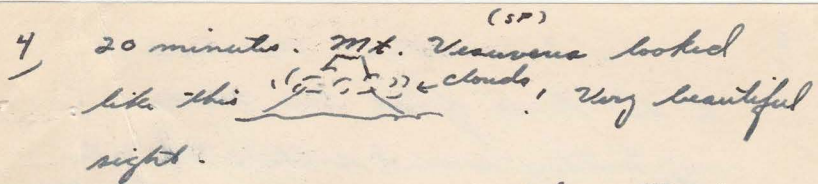 (SP)
4) 20 minutes. Mt. Vesuveus looked
like this ← clouds, Very beautiful
sight.